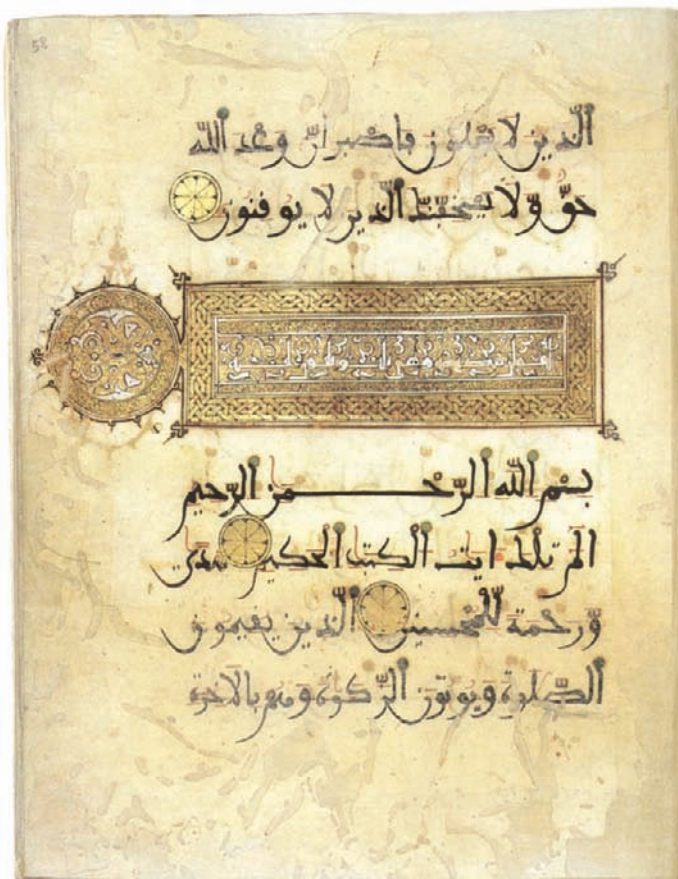 58
الذين لا يعلمون فاصبر ان وعد الله
حق ولا يستخفنك الذين لا يوقنون
بسم الله الرحمن الرحيم
الم تلك ايت الكتب الحكيم هدى
ورحمة للمحسنين الذين يقيمون
الصلوة ويوتون الزكوة وهم بالاخرة